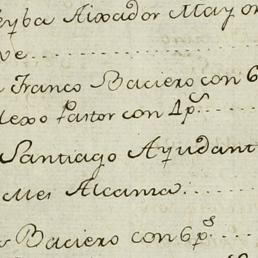 eyba Aixador Mayor
ve
Franco Baciero con 6
lexo Pastor con 4 p.s
Santiago Ayudant
Mes Alcama
Baciero con 6 p.s